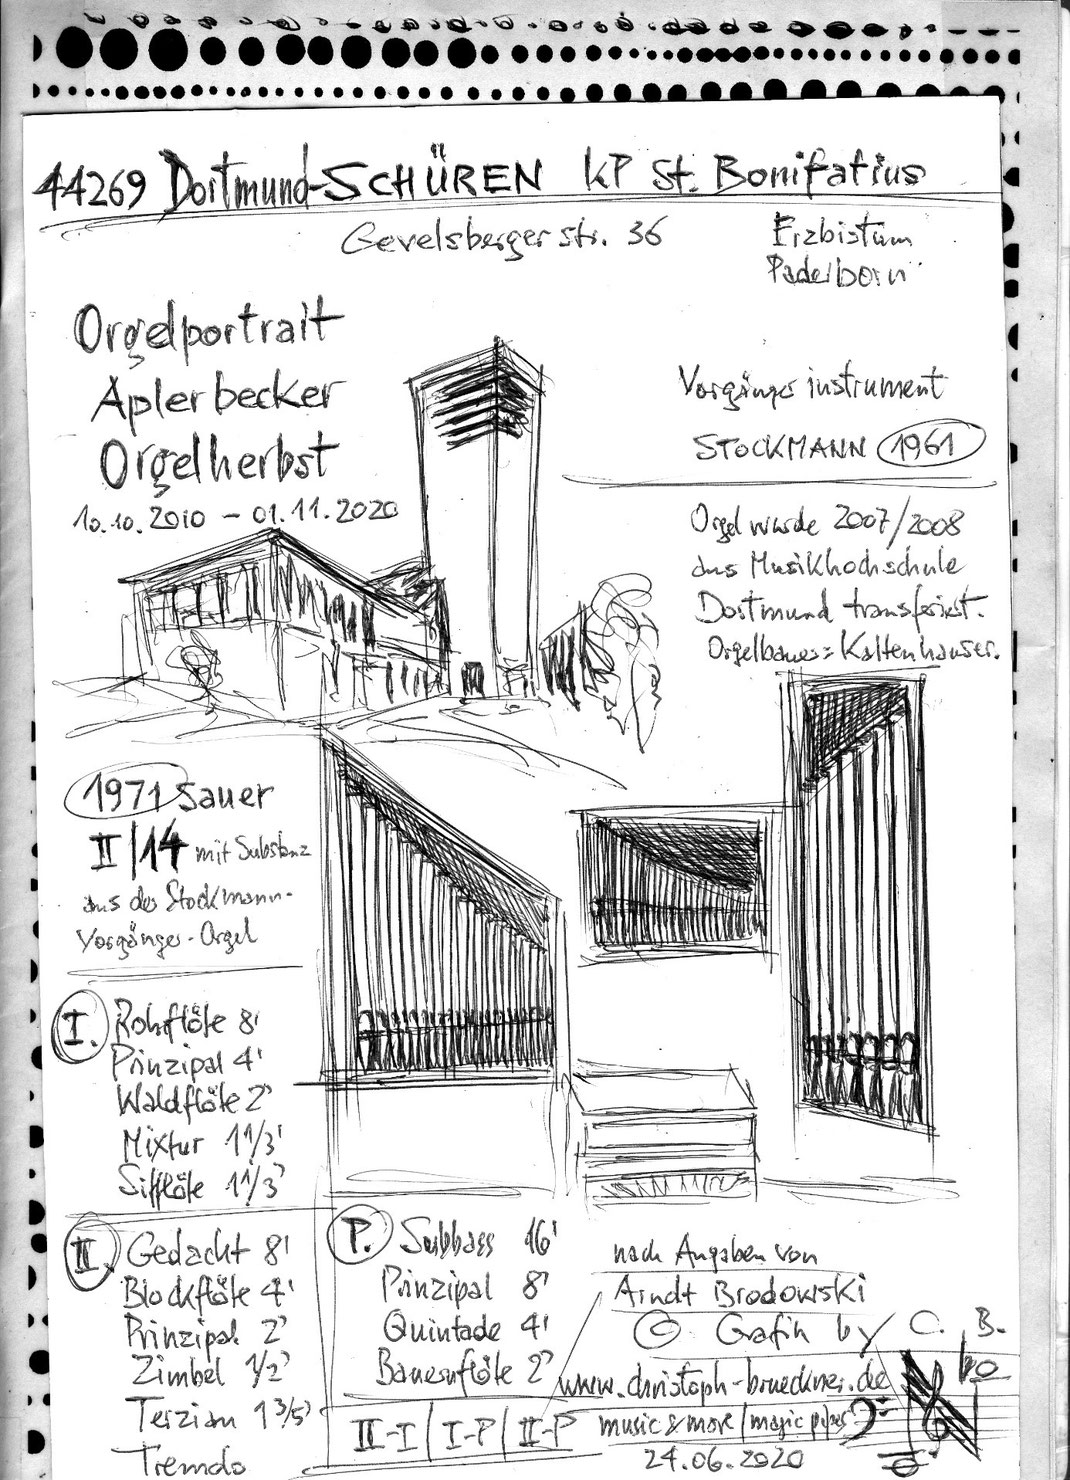 44269 Dortmund-SCHÜREN kP St. Bonifatius
Gevelsberger str. 36
Erzbistum
Paderborn
Orgelportrait
Aplerbecker
Orgelherbst
10.10.2010 - 01.11.2020
Vorgänger instrument
STOCKMANN 1961
Orgel wurde 2007/2008
aus Musikhochschule
Dortmund transferiert.
Orgelbauer: Kaltenhauser.
1971 Sauer
II/14 mit Substanz
aus der Stockmann-
Vorgänger-Orgel
I. Rohrflöte 8'
Prinzipal 4'
Waldflöte 2'
Mixtur 1 1/3'
Sifflöte 1 1/3'
II. Gedackt 8'
Blockflöte 4'
Prinzipal 2'
Zimbel 1/2'
Terzian 1 3/5'
Tremolo
P. Subbass 16'
Prinzipal 8'
Quintade 4'
Bauernflöte 2'
II-I / I-P / II-P
nach Angaben von
Arndt Brodowski
© Grafik by C. B.
www.christoph-brueckner.de
music & more / magic pipes
24.06.2020